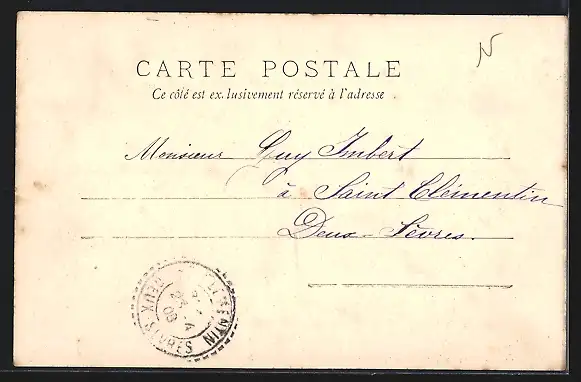 CARTE POSTALE
Ce côté est exclusivement réservé à l'adresse
Monsieur Guy Imbert
à Saint Clémentin
Deux-Sèvres.
DEUX-SÈVRES